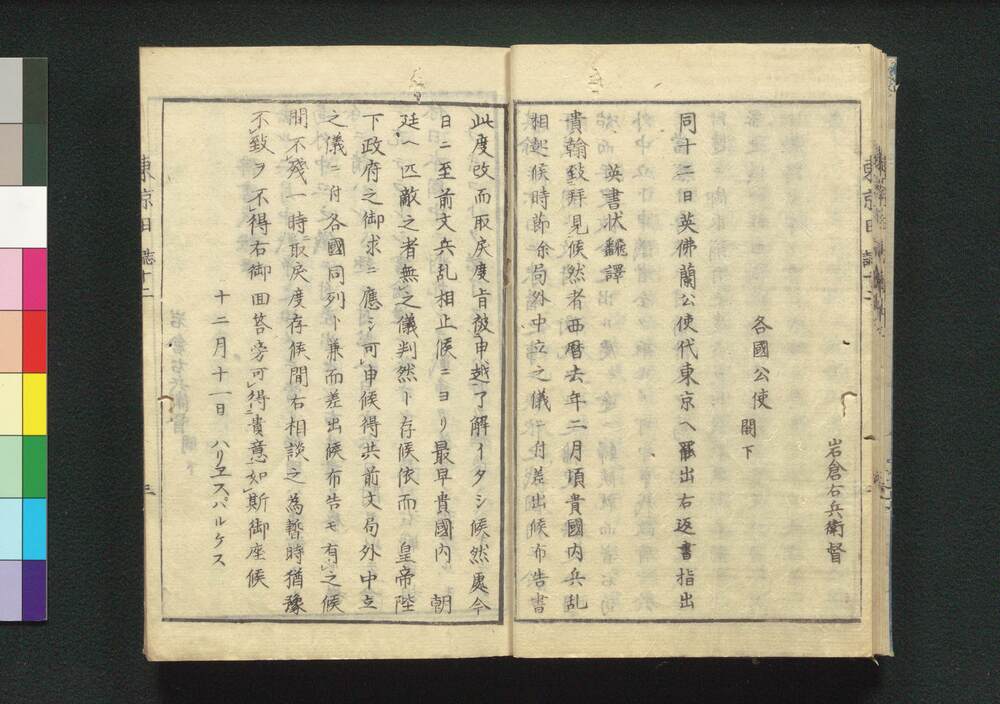 岩倉右兵衛督
各國公使
閣下
同十二日英佛蘭公使代東京ヘ罷出右返書指出
英書状翻譯
貴翰致拜見候然者西暦去年二月頃貴國内兵乱
相起候時節余局外中立之儀ニ付差出候布告書
此度改而取戻度旨被申越了解イタシ候然處今
日ニ至前文兵乱相止候ニヨリ最早貴國内 朝
廷ヘ匹敵之者無之儀判然ト存候依而 皇帝陛
下政府之御求ニ應シ可申候得共前文局外中立
之儀ニ付各國同列ト兼而差出候布告モ有之候
間不殘一時取戻度存候間右相談之為暫時猶豫
不致ヲ不得右御囬答旁可得貴意如斯御座候
十二月十一日 ハリヱスパルケス
東京日誌十二
三